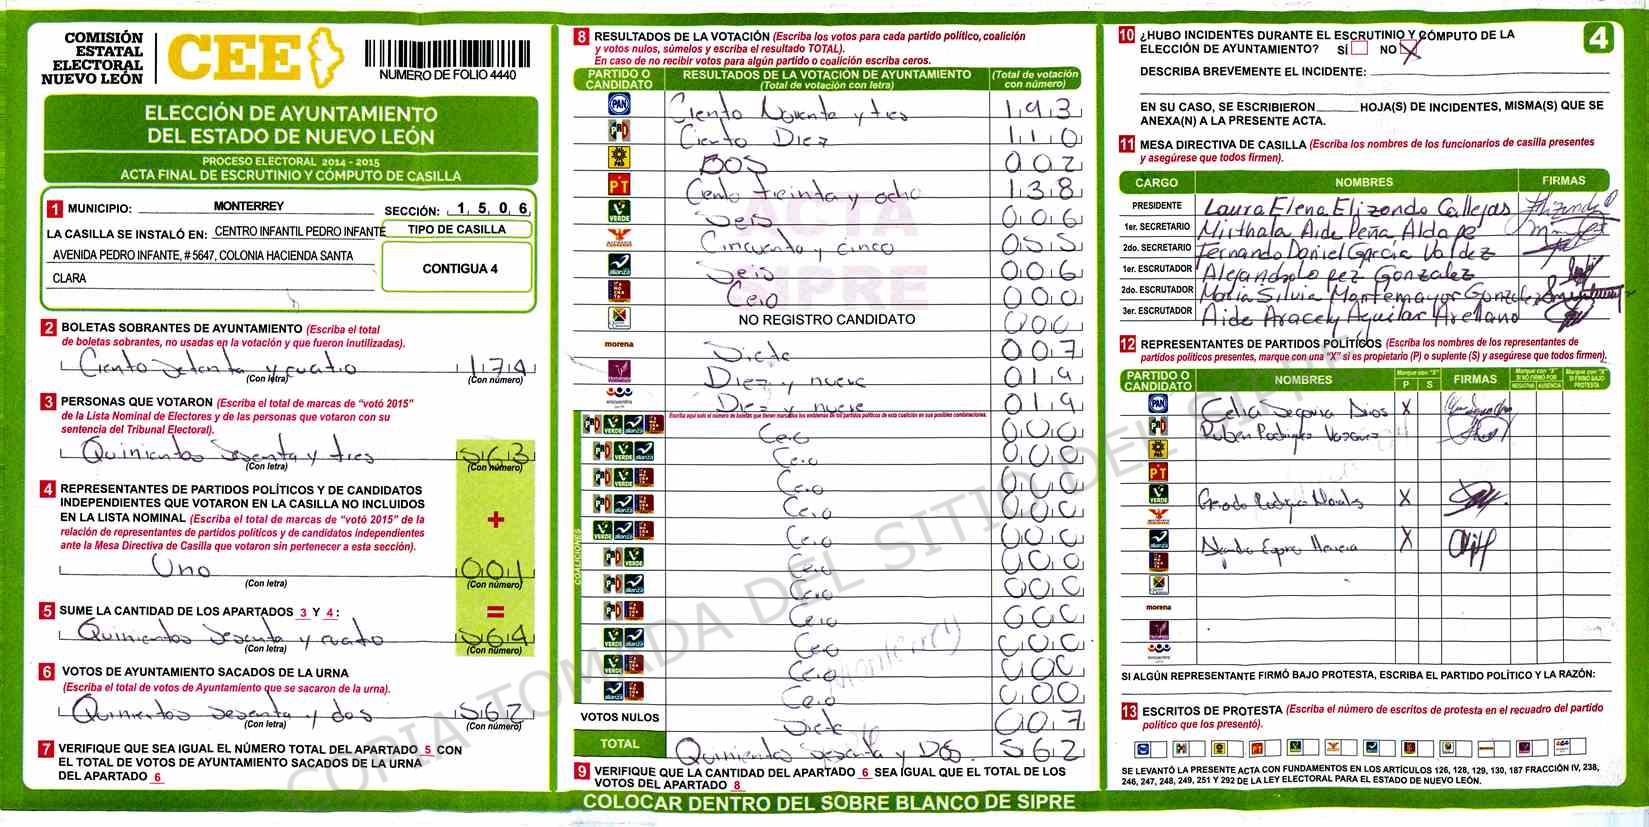 COMISIÓN
ESTATAL
ELECTORAL
NUEVO LEÓN
CEE
NUMERO DE FOLIO 4440
ELECCIÓN DE AYUNTAMIENTO
DEL ESTADO DE NUEVO LEÓN
PROCESO ELECTORAL 2014 - 2015
ACTA FINAL DE ESCRUTINIO Y CÓMPUTO DE CASILLA
1 MUNICIPIO: MONTERREY SECCIÓN: 1,5,0,6
LA CASILLA SE INSTALÓ EN: CENTRO INFANTIL PEDRO INFANTE
AVENIDA PEDRO INFANTE, # 5647, COLONIA HACIENDA SANTA
CLARA
TIPO DE CASILLA
CONTIGUA 4
2 BOLETAS SOBRANTES DE AYUNTAMIENTO (Escriba el total
de boletas sobrantes, no usadas en la votación y que fueron inutilizadas).
Ciento setenta y cuatro 174
(Con letra) (Con número)
3 PERSONAS QUE VOTARON (Escriba el total de marcas de "votó 2015"
de la Lista Nominal de Electores y de las personas que votaron con su
sentencia del Tribunal Electoral).
Quinientos sesenta y tres 563
(Con letra) (Con número)
4 REPRESENTANTES DE PARTIDOS POLÍTICOS Y DE CANDIDATOS
INDEPENDIENTES QUE VOTARON EN LA CASILLA NO INCLUIDOS
EN LA LISTA NOMINAL (Escriba el total de marcas de "votó 2015" de la
relación de representantes de partidos políticos y de candidatos independientes
ante la Mesa Directiva de Casilla que votaron sin pertenecer a esta sección).
+
Uno 001
(Con letra) (Con número)
5 SUME LA CANTIDAD DE LOS APARTADOS 3 Y 4 : =
Quinientos sesenta y cuatro 564
(Con letra) (Con número)
6 VOTOS DE AYUNTAMIENTO SACADOS DE LA URNA
(Escriba el total de votos de Ayuntamiento que se sacaron de la urna).
Quinientos sesenta y dos 562
(Con letra) (Con número)
7 VERIFIQUE QUE SEA IGUAL EL NÚMERO TOTAL DEL APARTADO 5 CON
EL TOTAL DE VOTOS DE AYUNTAMIENTO SACADOS DE LA URNA
DEL APARTADO 6
8 RESULTADOS DE LA VOTACIÓN (Escriba los votos para cada partido político, coalición
y votos nulos, súmelos y escriba el resultado TOTAL).
En caso de no recibir votos para algún partido o coalición escriba ceros.
PARTIDO O CANDIDATO RESULTADOS DE LA VOTACIÓN DE AYUNTAMIENTO
(Total de votación con letra) (Total de votación con número)
PAN Ciento Noventa y tres 193
PRD Ciento Diez 110
PRD DOS 002
PT Cento treinta y ocho 138
VERDE Seis 006
Cincuenta y cinco 055
alianza Seis 006
Cero 000
NO REGISTRO CANDIDATO 000
morena Siete 007
Diez y nueve 019
encuentro Diez y nueve 019
Escriba aquí solo el número de boletas que tienen marcados los emblemas de los partidos políticos de esta coalición en sus posibles combinaciones.
COALICIONES
Cero 000
Cero 000
Cero 000
Cero 000
Cero 000
Cero 000
Cero 000
Cero 000
Cero 000
Cero 000
Cero 000
VOTOS NULOS Siete 007
TOTAL Quinientos Sesenta y Dos 562
Monterrey
ACTA
SIPRE
9 VERIFIQUE QUE LA CANTIDAD DEL APARTADO 6 SEA IGUAL QUE EL TOTAL DE LOS
VOTOS DEL APARTADO 8
COLOCAR DENTRO DEL SOBRE BLANCO DE SIPRE
10 ¿HUBO INCIDENTES DURANTE EL ESCRUTINIO Y CÓMPUTO DE LA
ELECCIÓN DE AYUNTAMIENTO? SÍ NO X
4
DESCRIBA BREVEMENTE EL INCIDENTE:
EN SU CASO, SE ESCRIBIERON HOJA(S) DE INCIDENTES, MISMA(S) QUE SE
ANEXA(N) A LA PRESENTE ACTA.
11 MESA DIRECTIVA DE CASILLA (Escriba los nombres de los funcionarios de casilla presentes
y asegúrese que todos firmen).
CARGO NOMBRES FIRMAS
PRESIDENTE Laura Elena Elizondo Callejas
1er. SECRETARIO Mirthala Aide Peña Aldape
2do. SECRETARIO Fernando Daniel García Valdez
1er. ESCRUTADOR Alejandro Lopez Gonzalez
2do. ESCRUTADOR Maria Silvia Montemayor Gonzalez
3er. ESCRUTADOR Aide Aracely Aguilar Arellano
12 REPRESENTANTES DE PARTIDOS POLÍTICOS (Escriba los nombres de los representantes de
partidos políticos presentes, marque con una "X" si es propietario (P) o suplente (S) y asegúrese que todos firmen).
PARTIDO O CANDIDATO NOMBRES Marque con "X" P S FIRMAS Marque con "X" SI NO FIRMÓ POR NEGATIVA AUSENCIA Marque con "X" SI FIRMÓ BAJO PROTESTA
PAN Celia Segovia Rios X
Ruben Rodriguez Vazquez
PT
VERDE X
alianza X
morena
SI ALGÚN REPRESENTANTE FIRMÓ BAJO PROTESTA, ESCRIBA EL PARTIDO POLÍTICO Y LA RAZÓN:
13 ESCRITOS DE PROTESTA (Escriba el número de escritos de protesta en el recuadro del partido
político que los presentó).
SE LEVANTÓ LA PRESENTE ACTA CON FUNDAMENTOS EN LOS ARTÍCULOS 126, 128, 129, 130, 187 FRACCIÓN IV, 238,
246, 247, 248, 249, 251 Y 292 DE LA LEY ELECTORAL PARA EL ESTADO DE NUEVO LEÓN.
COPIA TOMADA DEL SITIO DEL SIPRE